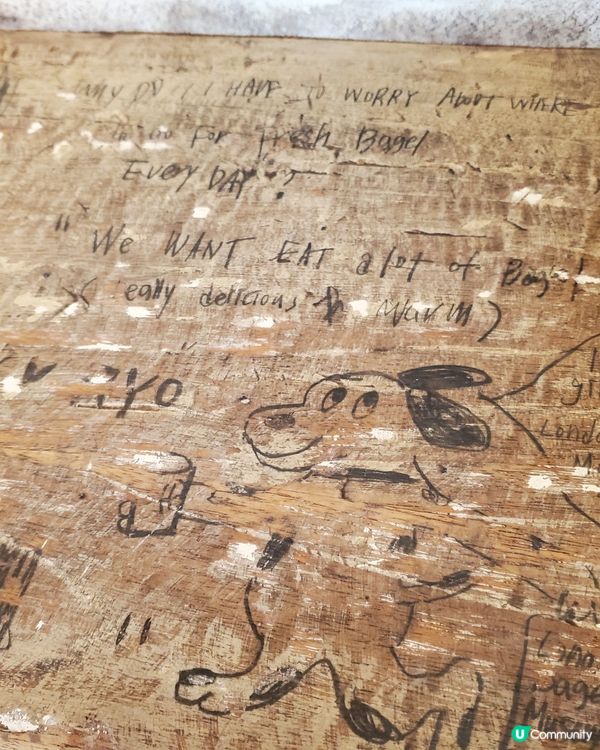 WHY DO I HAVE TO WORRY ABOUT WHERE
to GO FOR fresh Bagel
EVERY DAY ?
" WE WANT EAT a lot of Bagel
eally delicious & Warm )
RYO
"
Londo
Lond
Bage
Museu
U Community